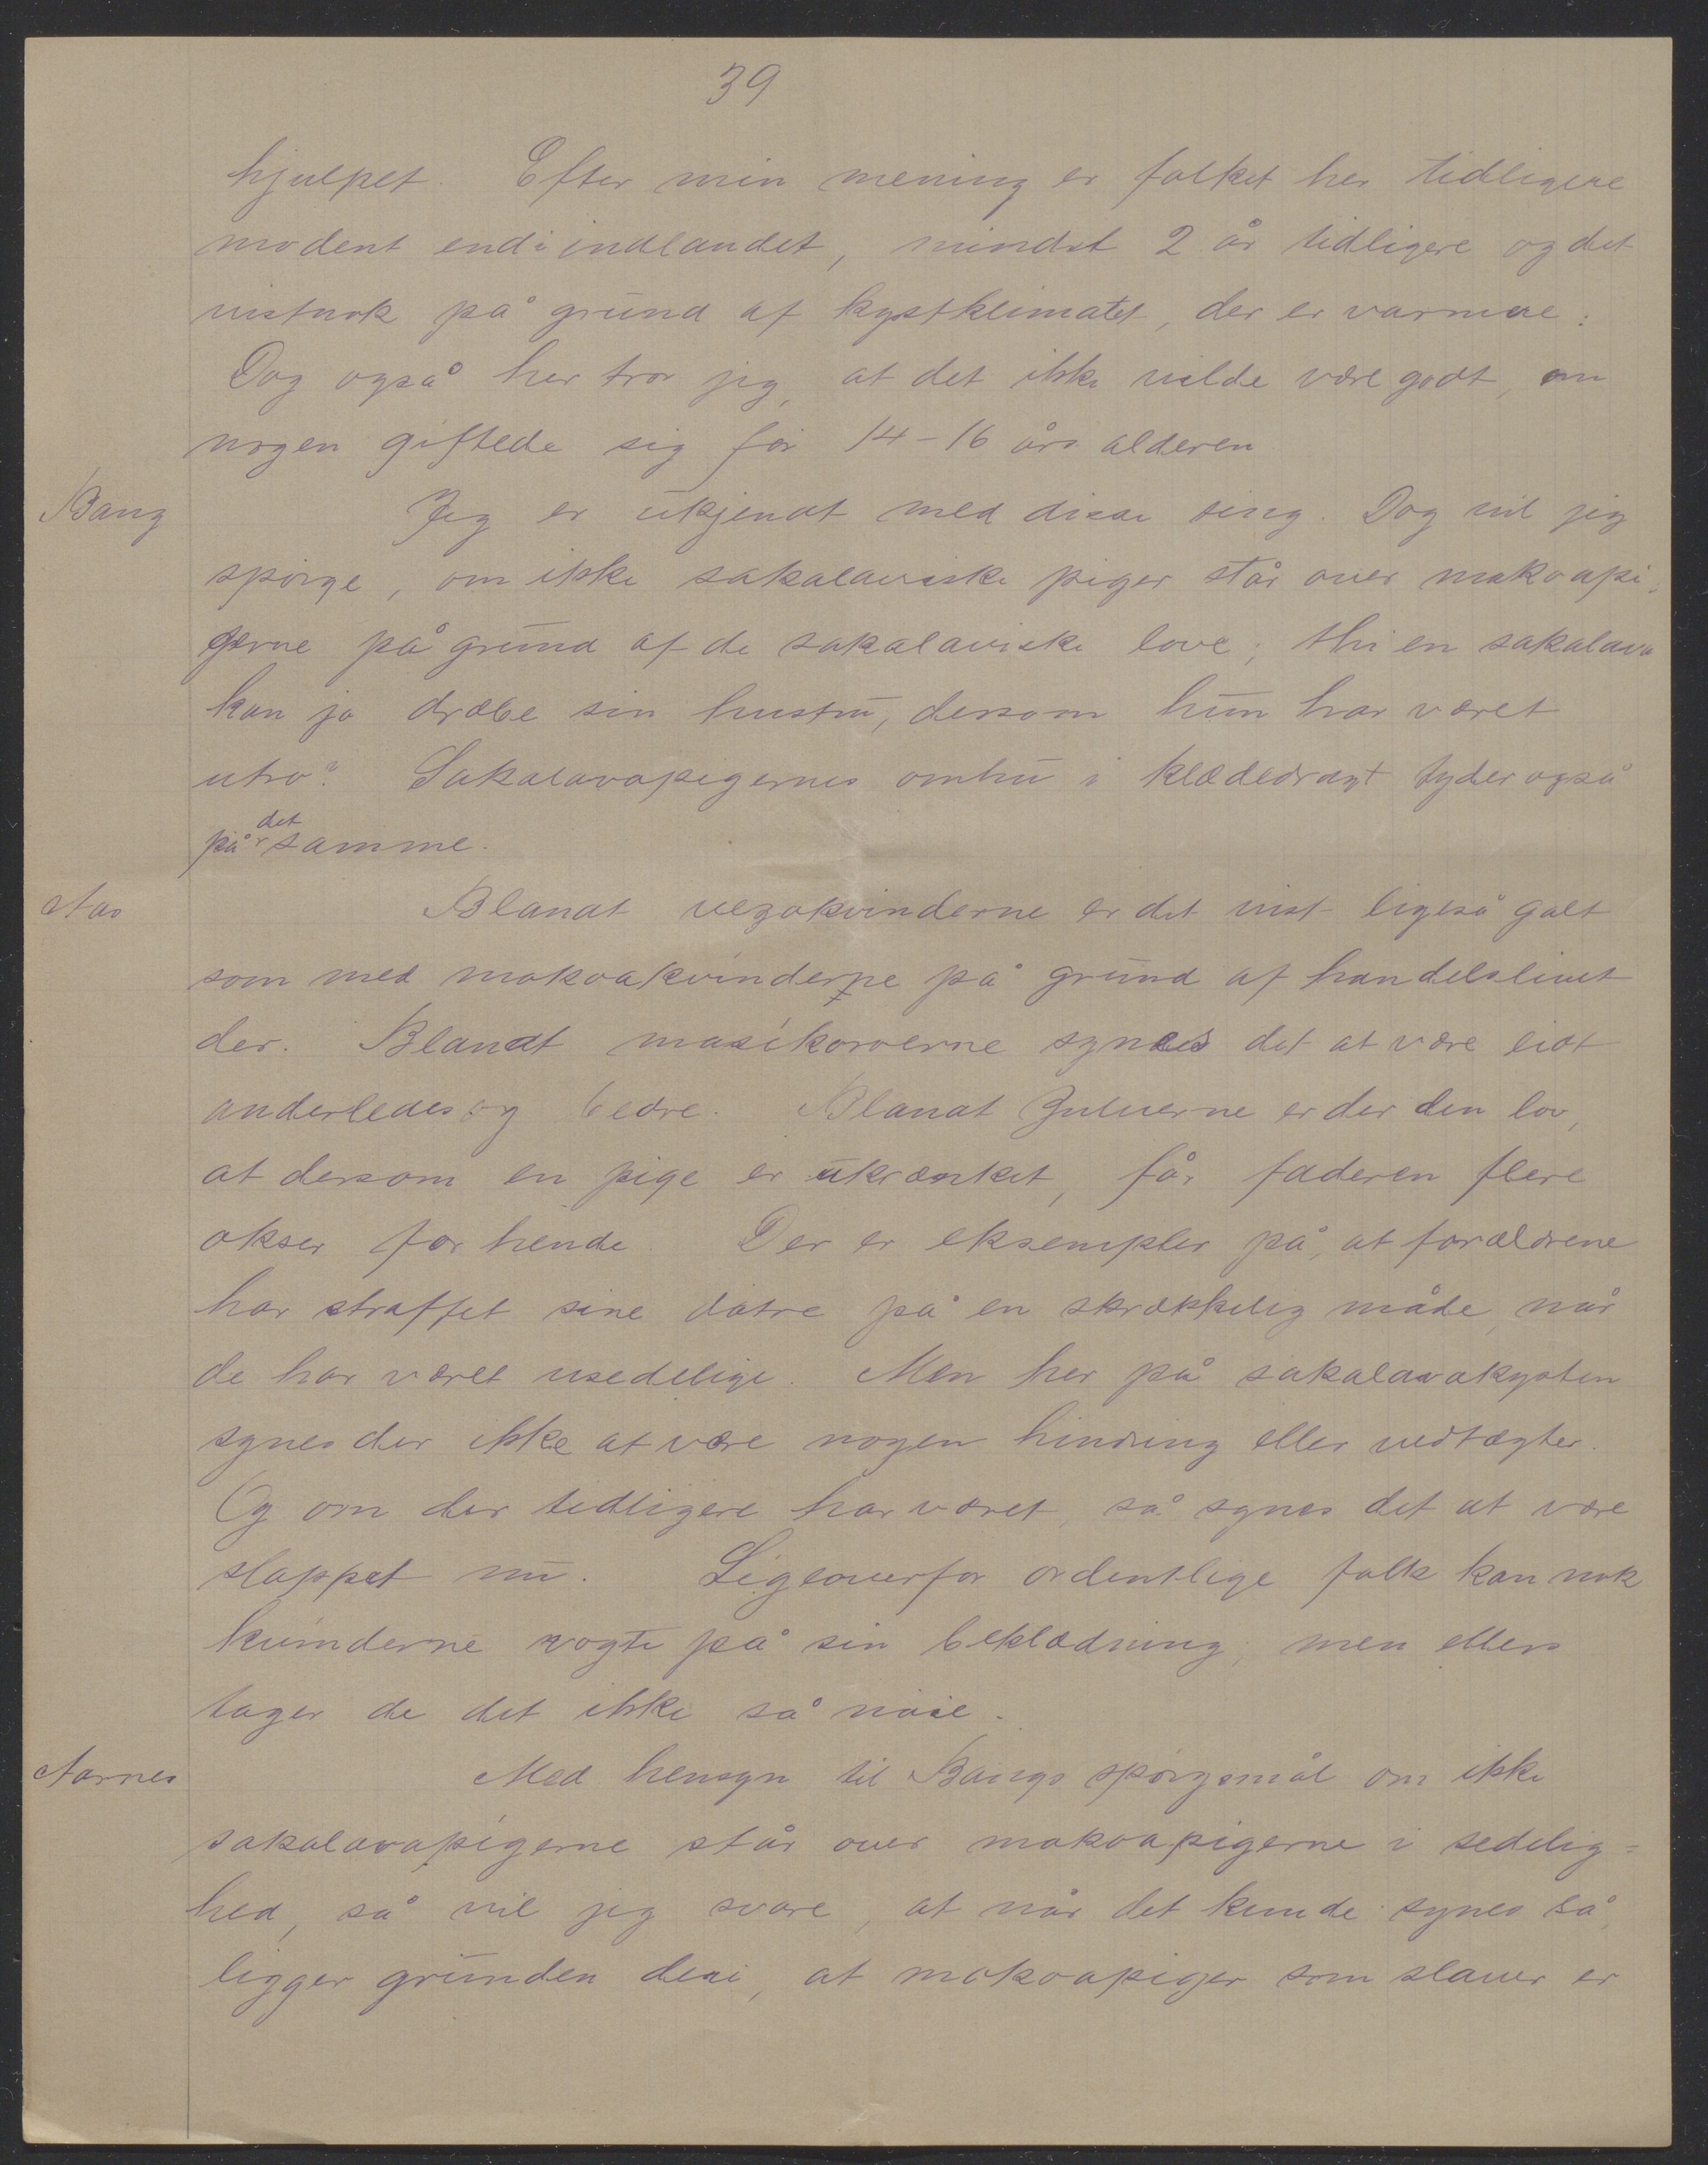 39
hjulpet. Efter min mening er folket her tidligere
modent end i indlandet, mindst 2 år tidligere og det
vistnok på grund af kystklimatet, der er varmere.
Dog også her tror jeg, at det ikke vilde være godt, om
nogen giftede sig før 14-16 års alderen
Bang Jeg er ukjendt med disse ting. Dog vil jeg
spørge, om ikke sakalaviske piger står over makoapi-
gerne på grund af de sakalaviske love; thi en sakalava
kan jo dræbe sin hustru, dersom hun har været
utro? Sakalavapigernes omhu i klædedragt tyder også
på det samme.
Aas Blandt vezokvinderne er det vist ligeså galt
som med makoakvinderne på grund af handelslivet
der. Blandt masikoroerne synes det at være lidt
anderledes og bedre. Blandt Zuluerne er der den lov,
at dersom en pige er ukrænket, får faderen flere
okser for hende. Der er eksempler på, at forældrene
har straffet sine døtre på en skrækkelig måde, når
de har været usedelige. Men her på sakalavakysten
synes der ikke at være nogen hindring eller vedtægter.
Og om der tidligere har været, så synes det at være
slappet nu. Ligeoverfor ordentlige folk kan nok
kvinderne vogte på sin beklædning, men ellers
tager de det ikke så nøie.
Aarnes Med hensyn til Bangs spørgsmål om ikke
sakalavapigerne står over makoapigerne i sedelig=
hed, så vil jeg svare, at når det kunde synes så,
ligger grunden deri, at makoapiger som slaver er